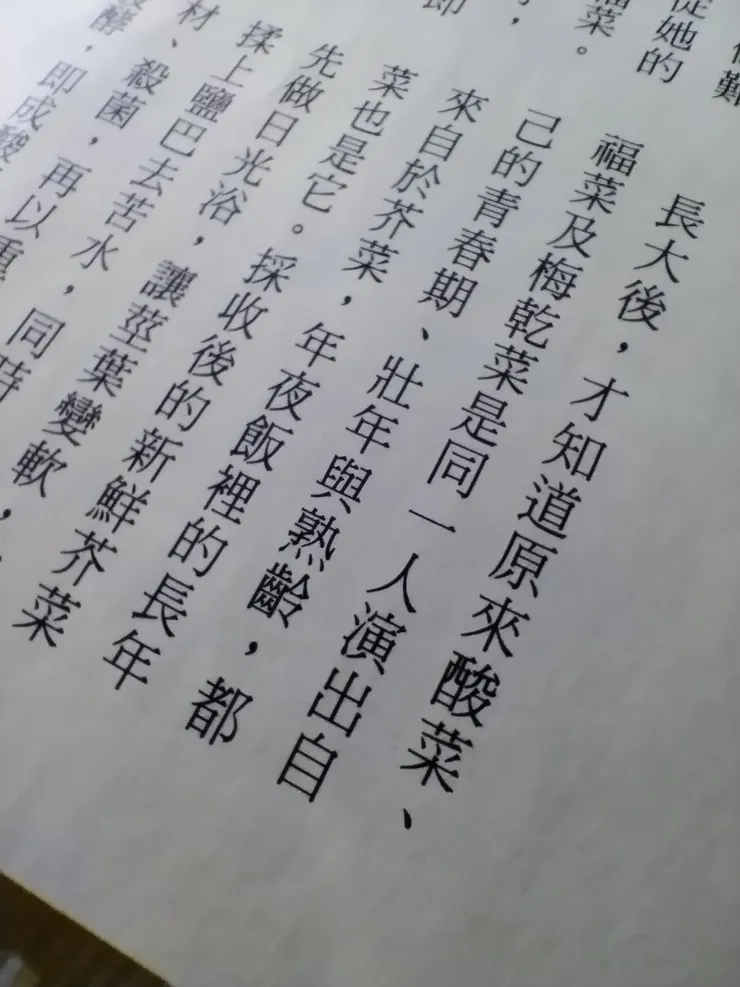 難
從她的
菜。
即
長大後，才知道原來酸菜、
福菜及梅乾菜是同一人演出自
己的青春期、壯年與熟齡，都
來自於芥菜，年夜飯裡的長年
菜也是它。採收後的新鮮芥菜
先做日光浴，讓莖葉變軟，
揉上鹽巴去苦水，同時
材、殺菌，再以重
酵，即成酸